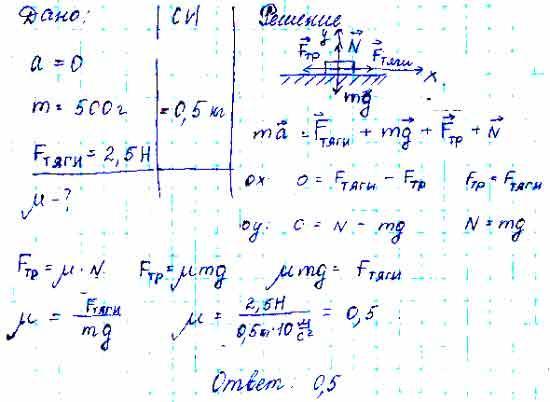 Дано:
СИ
a = 0
m = 500г
= 0,5 кг
Fтяги = 2,5Н
μ - ?
Решение
y N⃗
F⃗тр F⃗тяги
x
mg⃗
ma⃗ = F⃗тяги + mg⃗ + F⃗тр + N⃗
ox: 0 = Fтяги - Fтр Fтр = Fтяги
oy: 0 = N - mg N = mg
Fтр = μ · N Fтр = μmg μmg = Fтяги
μ = Fтяги / mg μ = 2,5Н / 0,5кг·10 м/с² = 0,5
Ответ: 0,5